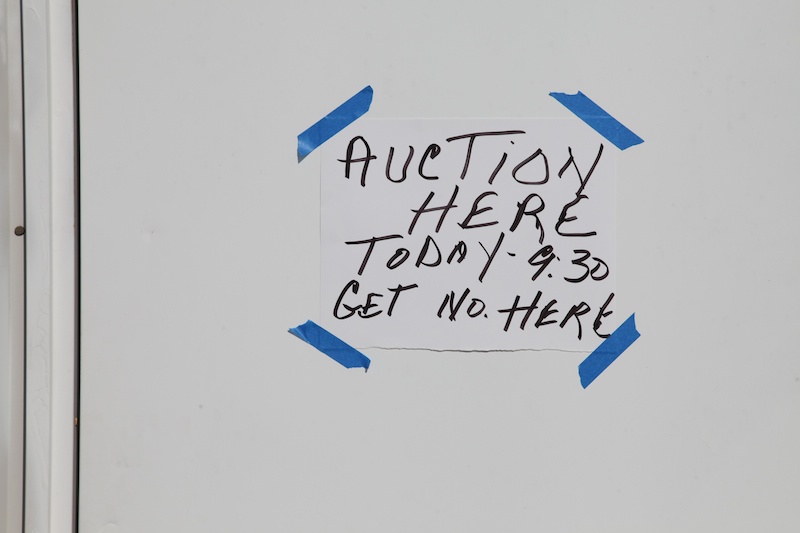 AUCTION
HERE
TODAY - 9:30
GET NO. HERE